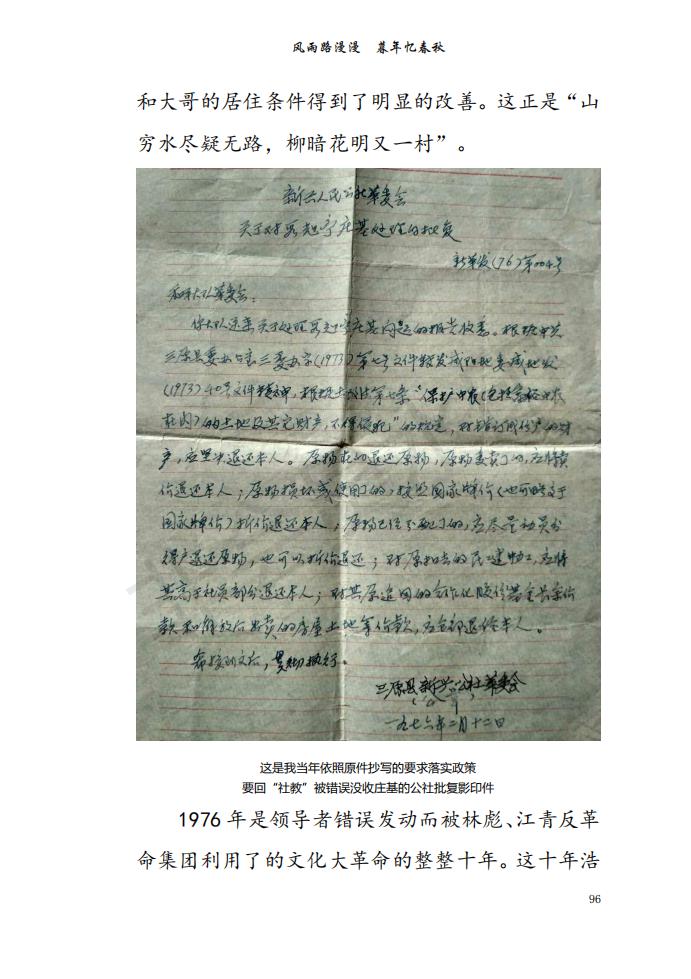 风雨路漫漫 暮年忆春秋
和大哥的居住条件得到了明显的改善。这正是“山
穷水尽疑无路，柳暗花明又一村”。
新兴人民公社革委会
关于对 庄基处理的批复
新革发(76)第004号
大队革委会：
你大队送来关于处理 庄基问题的报告收悉。根据中共
三原县委 三委办字(1973)第七号文件转发咸阳地委咸地发
(1973)40号文件精神，根据 第七条“保护中农(包括富裕中农
在内)的土地及其它财产，不得侵犯”的规定，对错订成份 的财
产，应坚决退还本人。原物在的退还原物，原物变卖了的，应将卖
价退还本人；原物损坏或使用了的，按照国家牌价(也可略高于
国家牌价)折价退还本人；原物已经分配了的，应尽量动员分
得户退还原物，也可以折价退还；对原扣去的 应将
其高于社员部分退还本人；对其原追回的合作化股份基金 价
款和解放后出卖的房屋土地等价款，应全部退给本人。
希接到文后，贯彻执行。
三原县新兴公社革委会
一九七六年二月十二日
这是我当年依照原件抄写的要求落实政策
要回“社教”被错误没收庄基的公社批复影印件
1976年是领导者错误发动而被林彪、江青反革
命集团利用了的文化大革命的整整十年。这十年浩
96